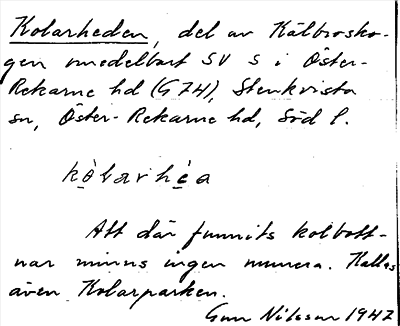 Kolarheden, del av Kälbrosko-
gen omedelbart SV S i Öster-
Rekarne hd (G 74), Stenkvista
sn, Öster-Rekarne hd, Söd l.
kòlarhéa
Att där funnits kolbott-
nar minns ingen numera. Kallas
även Kolarparken.
Gun Nilsson 1947